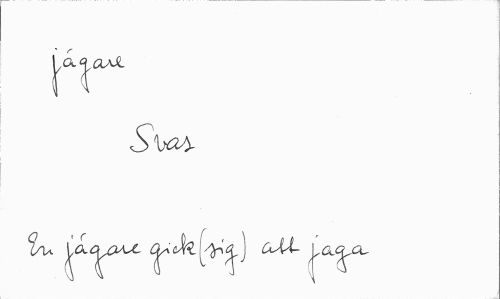 jágare
Svas
En jágare gick (sig) att jaga